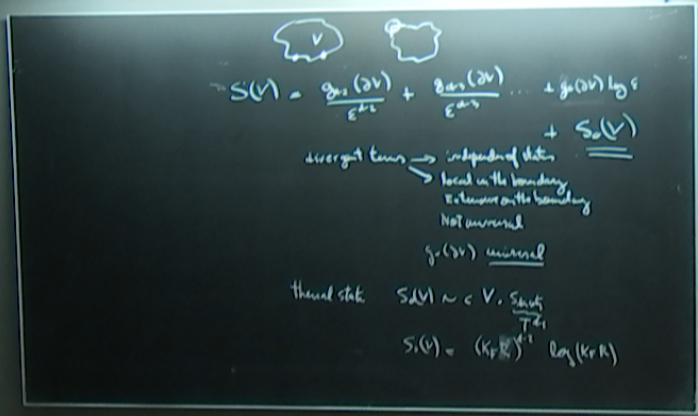 V
S(V) = g_{d-2}(∂V)/ε^{d-2} + g_{d-3}(∂V)/ε^{d-3} ... + g_0(∂V) log ε
+ S_0(V)
divergent terms → independent of states
→ local in the boundary
Extensive on the boundary
Not universal
g_0(∂V) universal
thermal state S_0(V) ~ c V .
T^{d-1}
S_0(V) = (K_F R)^{d-2} log(K_F R)